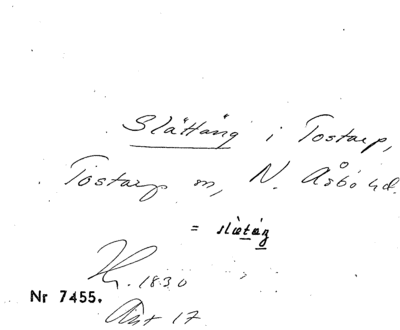 Slättäng i Tostarp,
Tostarp sn, N. Åsbo hd.
= slætæŋ
H. 1830
Nr 7455.
Ant 17